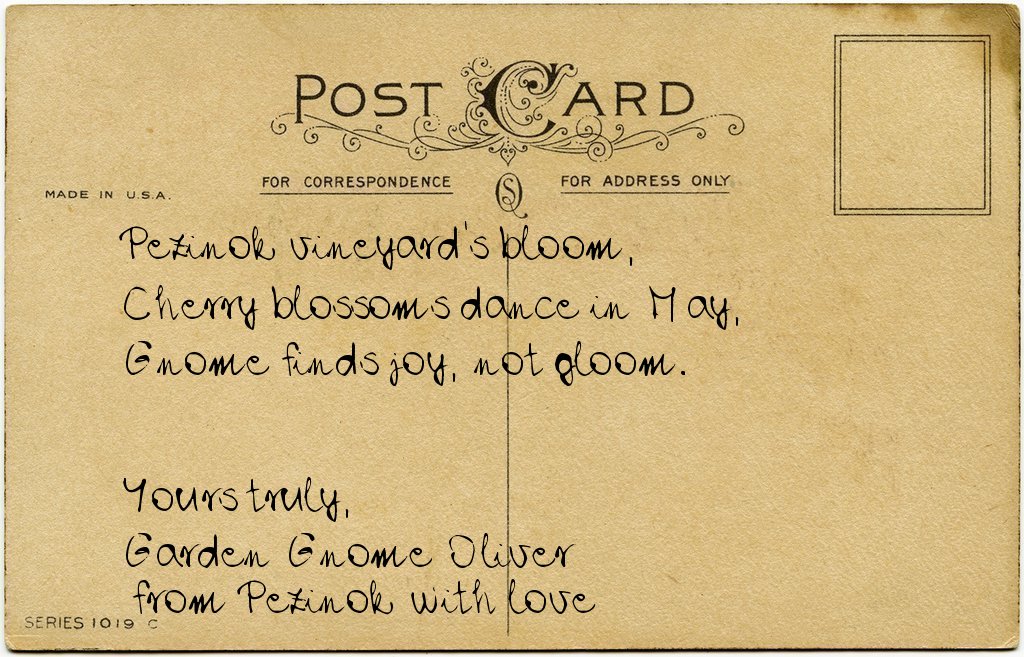 POST CARD
FOR CORRESPONDENCE
FOR ADDRESS ONLY
MADE IN U.S.A.
Pezinok vineyard's bloom,
Cherry blossoms dance in May,
Gnome finds joy, not gloom.
Yours truly,
Garden Gnome Oliver
from Pezinok with love
SERIES 1019 C